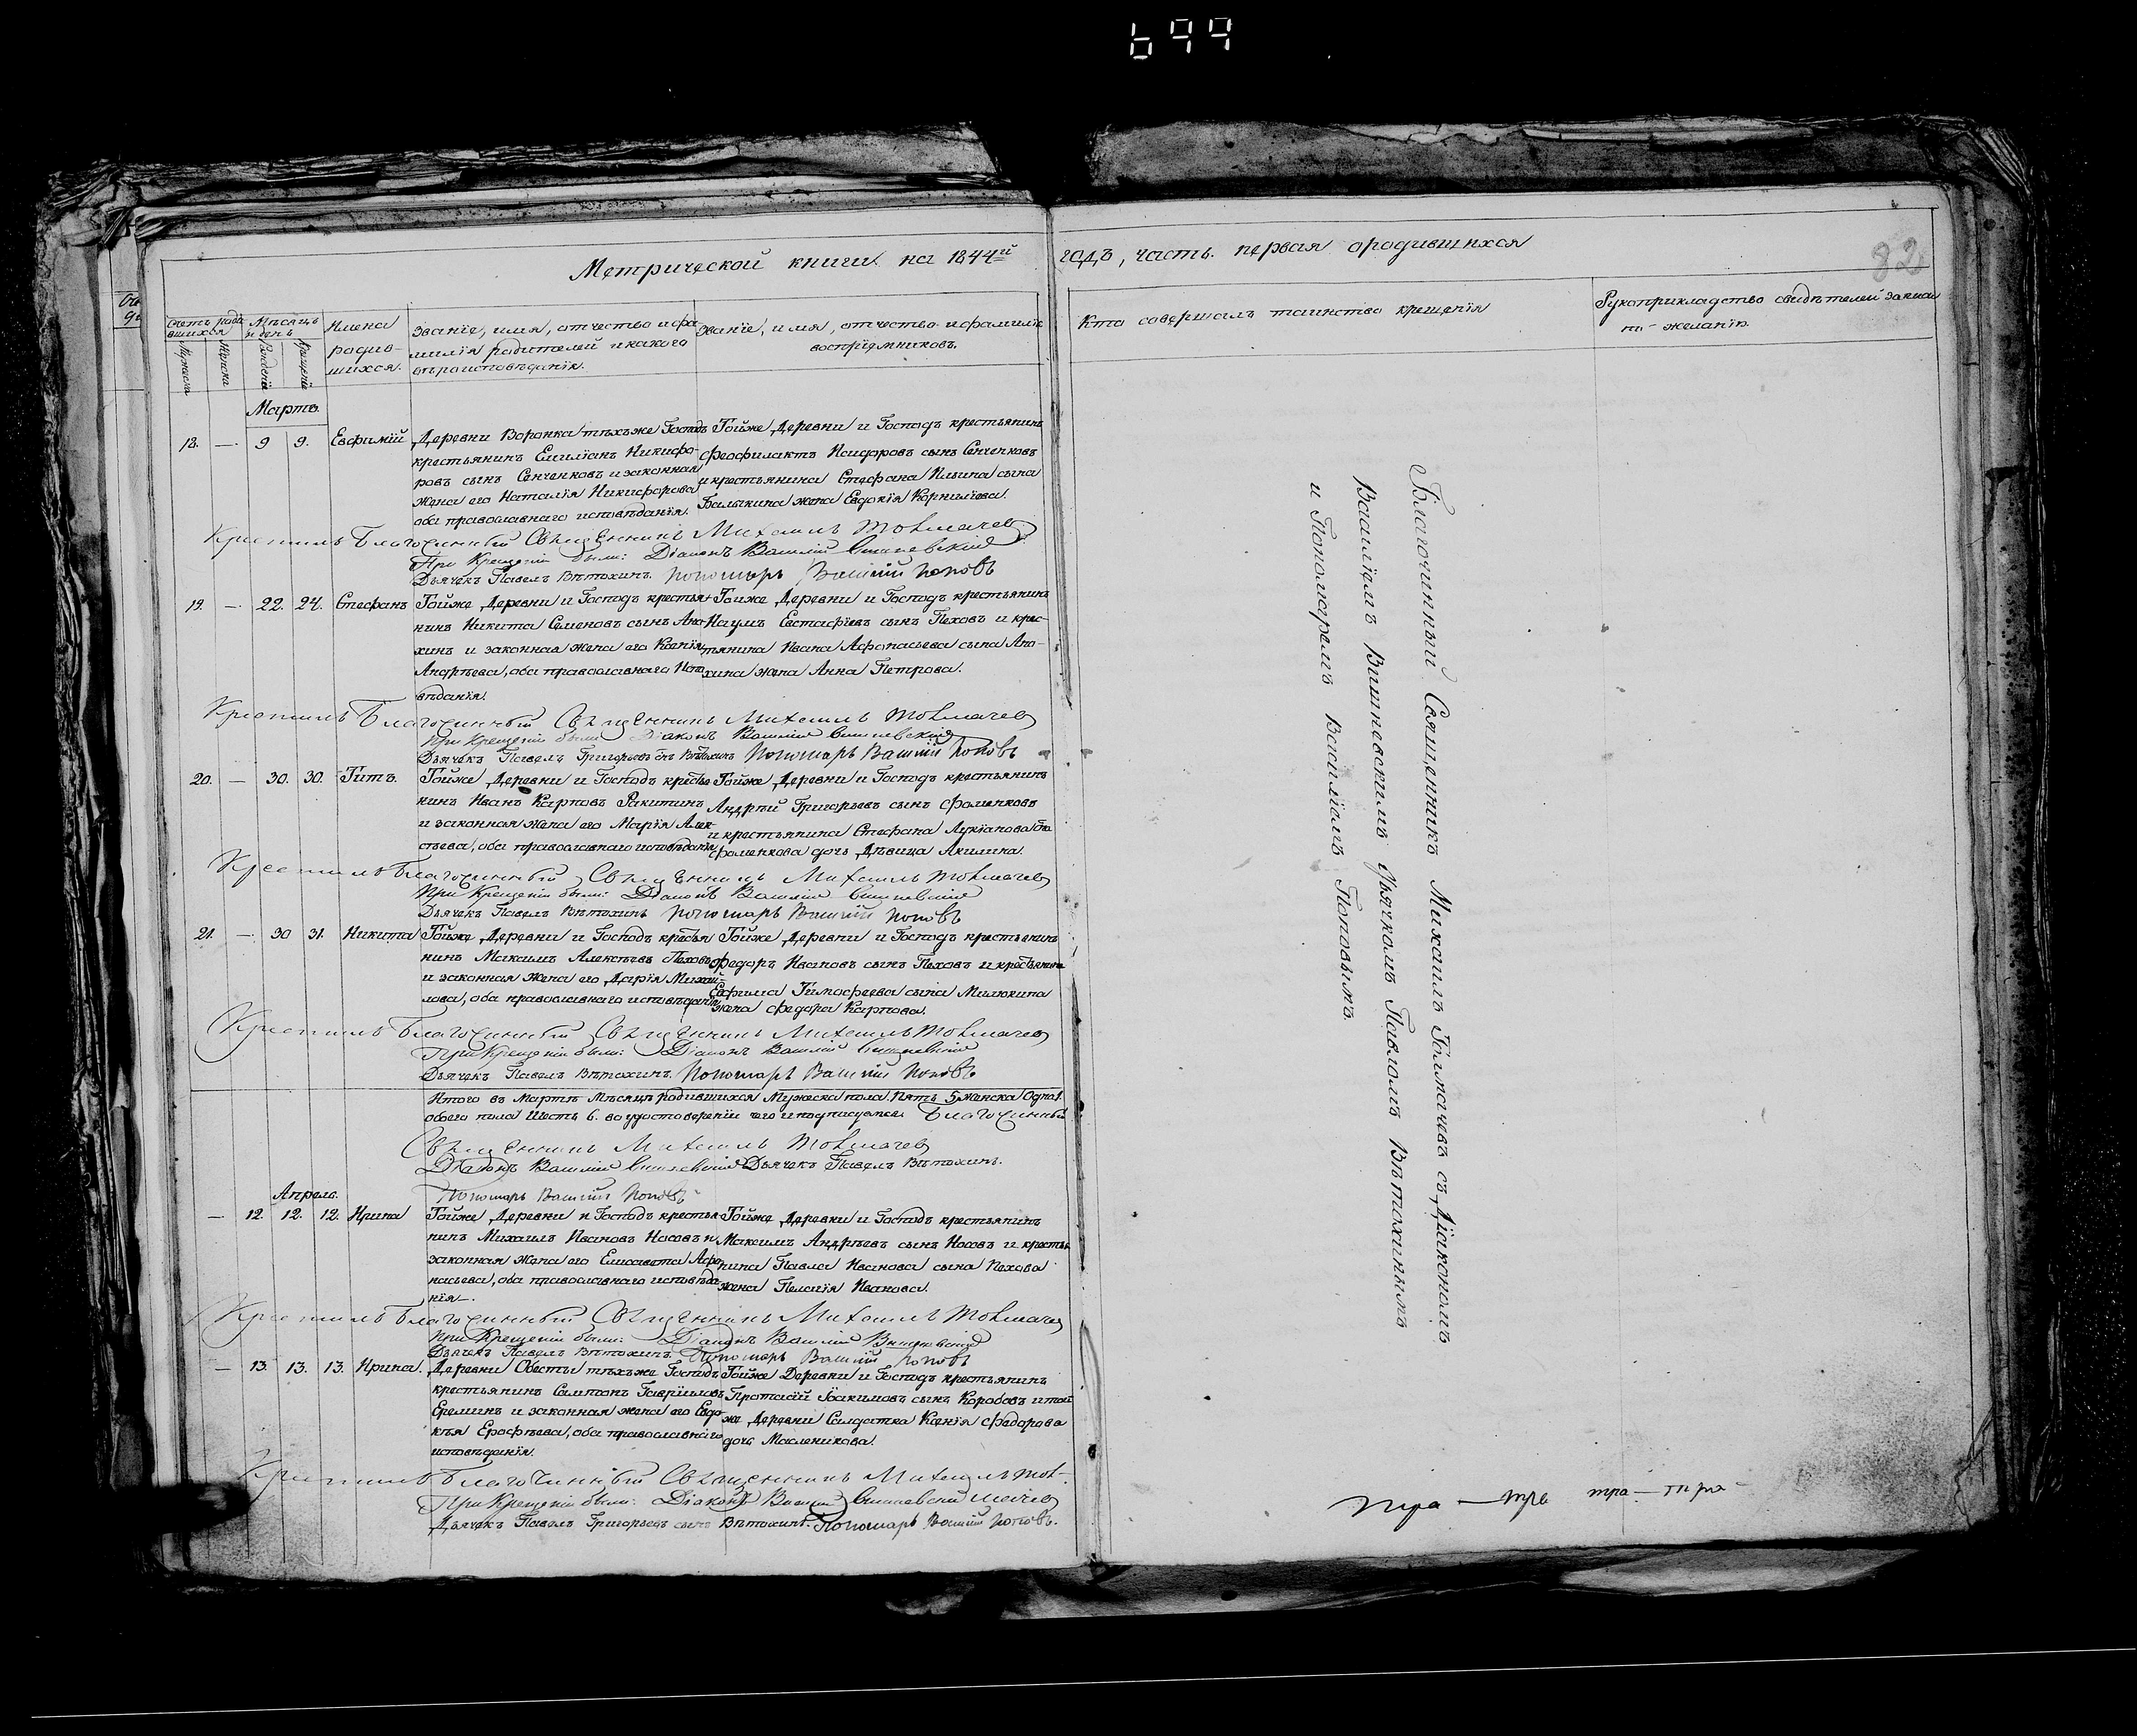 699
Метрической книги на 1844й годъ, часть первая ородившихся
82
Счетъ родившихся
Мужеска
Женска
Мѣсяцъ и день
Рожденія
Крещенія
Имена родив-
шихся.
Званіе, имя, отчество и фа-
милія родителей и какого
вѣроисповѣданія.
Званіе, имя, отчество и фамилія
воспріемниковъ.
Кто совершалъ таинство крещенія
Рукоприкладство свидѣтелей записи
по желанію.
Мартъ.
18. — 9 9. Евфимій
Деревни Воронка тѣхъже Господъ
крестьянинъ Емиліанъ Никифо-
ровъ сынъ Сенченковъ и законная
жена его Наталія Никифорова
оба православнаго исповѣданія.
Тойже Деревни и Господъ крестьянинъ
Феофилактъ Исидоровъ сынъ Сенченковъ
и крестьянина Стефана Ильина сына
Балыкина жена Евдокія Корниліева.
Крестилъ Благочинный Священникъ Михаилъ Толмачев
При Крещеніи были: Діаконъ Василій Вишневскій
Дьячекъ Павелъ Вѣтохинъ. Пономарь Василій Поповъ
19. — 22. 24. Стефанъ
Тойже Деревни и Господъ крестья-
нинъ Никита Семеновъ сынъ Ано-
хинъ и законная жена его Ксенія
Андрѣева, оба православнаго Испо-
вѣданія.
Тойже Деревни и Господъ крестьянинъ
Наумъ Евстафіевъ сынъ Пеховъ и крес-
тьянина Ивана Афонасьева сына Ано-
хина жена Анна Петрова.
Крестилъ Благочинный Священникъ Михаилъ Толмачев
При Крещеніи были Діаконъ Василій Вишневскій
Дьячекъ Павелъ Григорьевъ сынъ Вѣтохинъ Пономарь Василій Поповъ
20. — 30. 30. Титъ.
Тойже Деревни и Господъ крестья-
нинъ Иванъ Карповъ Ракитинъ
и законная жена его Марія Алек-
сѣева, оба православнаго исповѣданія
Тойже Деревни и Господъ крестьянинъ
Андрей Григорьевъ сынъ Фоменковъ
и крестьянина Стефана Лукіанова сна
Фоменкова дочь Дѣвица Акилина.
Крестилъ Благочинный Священникъ Михаилъ Толмачев
При Крещеніи были: Діаконъ Василій Вишневскій
Дьячекъ Павелъ Вѣтохинъ Пономарь Василій Поповъ
21. — 30 31. Никита
Тойже Деревни и Господъ крестья
нинъ Максимъ Алексѣевъ Пеховъ
и законная жена его Дарія Михай-
лова, оба православнаго исповѣданія
Тойже Деревни и Господъ крестьянинъ
Федоръ Ивановъ сынъ Пеховъ и крестьянина
Евфима Тимофеева сына Милюкина
жена Федора Карпова.
Крестилъ Благочинный Священникъ Михаилъ Толмачев
При Крещеніи были: Діаконъ Василій Вишневскій
Дьячекъ Павелъ Вѣтохинъ. Пономарь Василій Поповъ
Итого въ Мартѣ Мѣсяцѣ родившихся Мужеска пола Пять 5 женска Одна 1.
обоего пола Шесть 6. во удостовереніи чего и подписуемся Благочинный
Священникъ Михаилъ Толмачев
Діаконъ Василій Вишневскій Дьячекъ Павелъ Вѣтохинъ.
Пономарь Василій Поповъ
Апрель.
— 12. 12. 12. Ирина
Тойже Деревни и Господъ крестья-
нинъ Михаилъ Ивановъ Носовъ и
законная жена его Елисавета Афо-
насьева, оба православнаго исповѣда-
нія.
Тойже Деревни и Господъ крестьянинъ
Максимъ Андрѣевъ сынъ Носовъ и крестья-
нина Павла Иванова сына Пехова
жена Пелагія Иванова.
Крестилъ Благочинный Священникъ Михаилъ Толмачев
При Крещеніи были: Діаконъ Василій Вишневскій
Дьячекъ Павелъ Вѣтохинъ. Пономарь Василій Поповъ
— 13. 13. 13. Ирина.
Деревни Обесты тѣхъже Господъ
крестьянинъ Сампсонъ Гавріиловъ
Ереминъ и законная жена его Евдо-
кія Ерофѣева, оба православнаго
исповѣданія.
Тойже Деревни и Господъ крестьянинъ
Протасій Іоакимовъ сынъ Коробовъ и той
же Деревни Салдатка Ксенія Федорова
дочь Масленикова.
Крестилъ Благочинный Священникъ Михаилъ Тол-
При Крещеніи были: Діаконъ Василій Вишневскій мачев
Дьячекъ Павелъ Григорьевъ сынъ Вѣтохинъ. Пономарь Василій Поповъ.
Благочинный Священникъ Михаилъ Толмачевъ съ Діакономъ
Василіемъ Вишневскимъ Дьячкомъ Павломъ Вѣтохинымъ
и Пономаремъ Василіемъ Поповымъ.
тра — тра тра — тра